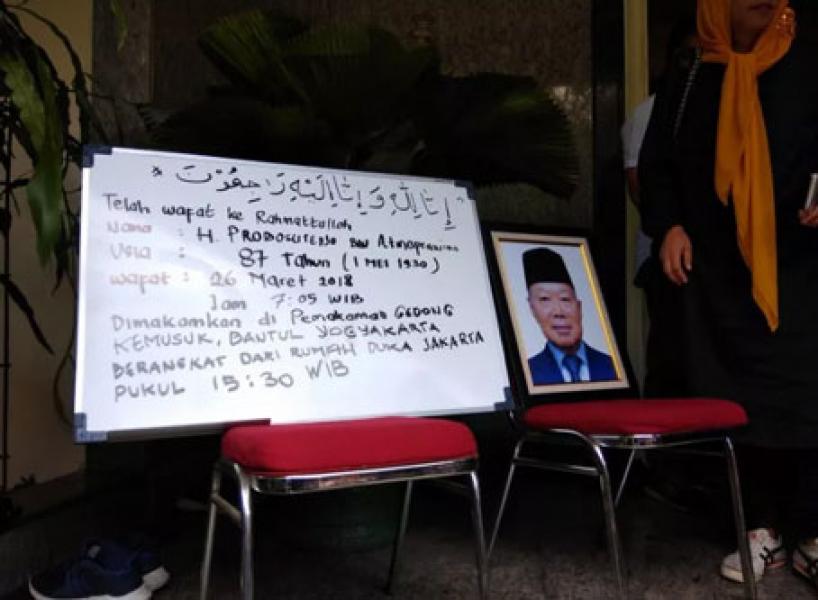 إِنَّا لِلَّهِ وَإِنَّا إِلَيْهِ رَاجِعُوْنَ
Telah wafat ke Rahmattullah
Nama : H. PROBOSUTEDJO BIN Atmoprawiro
Usia : 87 Tahun (1 MEI 1930)
wafat : 26 Maret 2018
Jam 7:05 WIB
Dimakamkan di Pemakaman GEDONG
KEMUSUK, BANTUL YOGYAKARTA
BERANGKAT DARI RUMAH DUKA JAKARTA
PUKUL 15:30 WIB